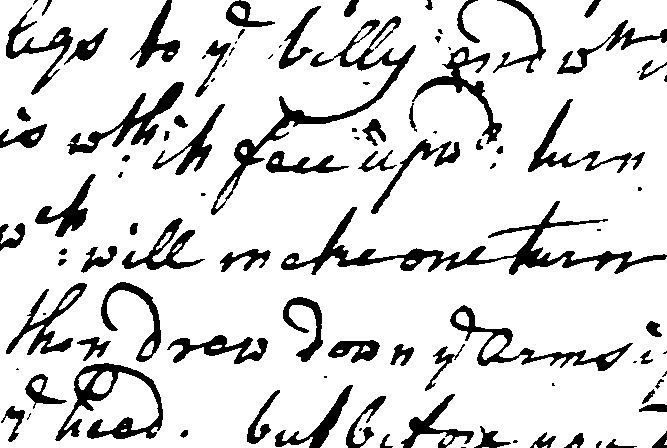 legs to yᵉ belly and wⁿ
is wᵗʰ: itſ face upwᵈ: turn
wᶜʰ: will make one turn
then drew down yᵉ Arms
yᵉ head. but before you